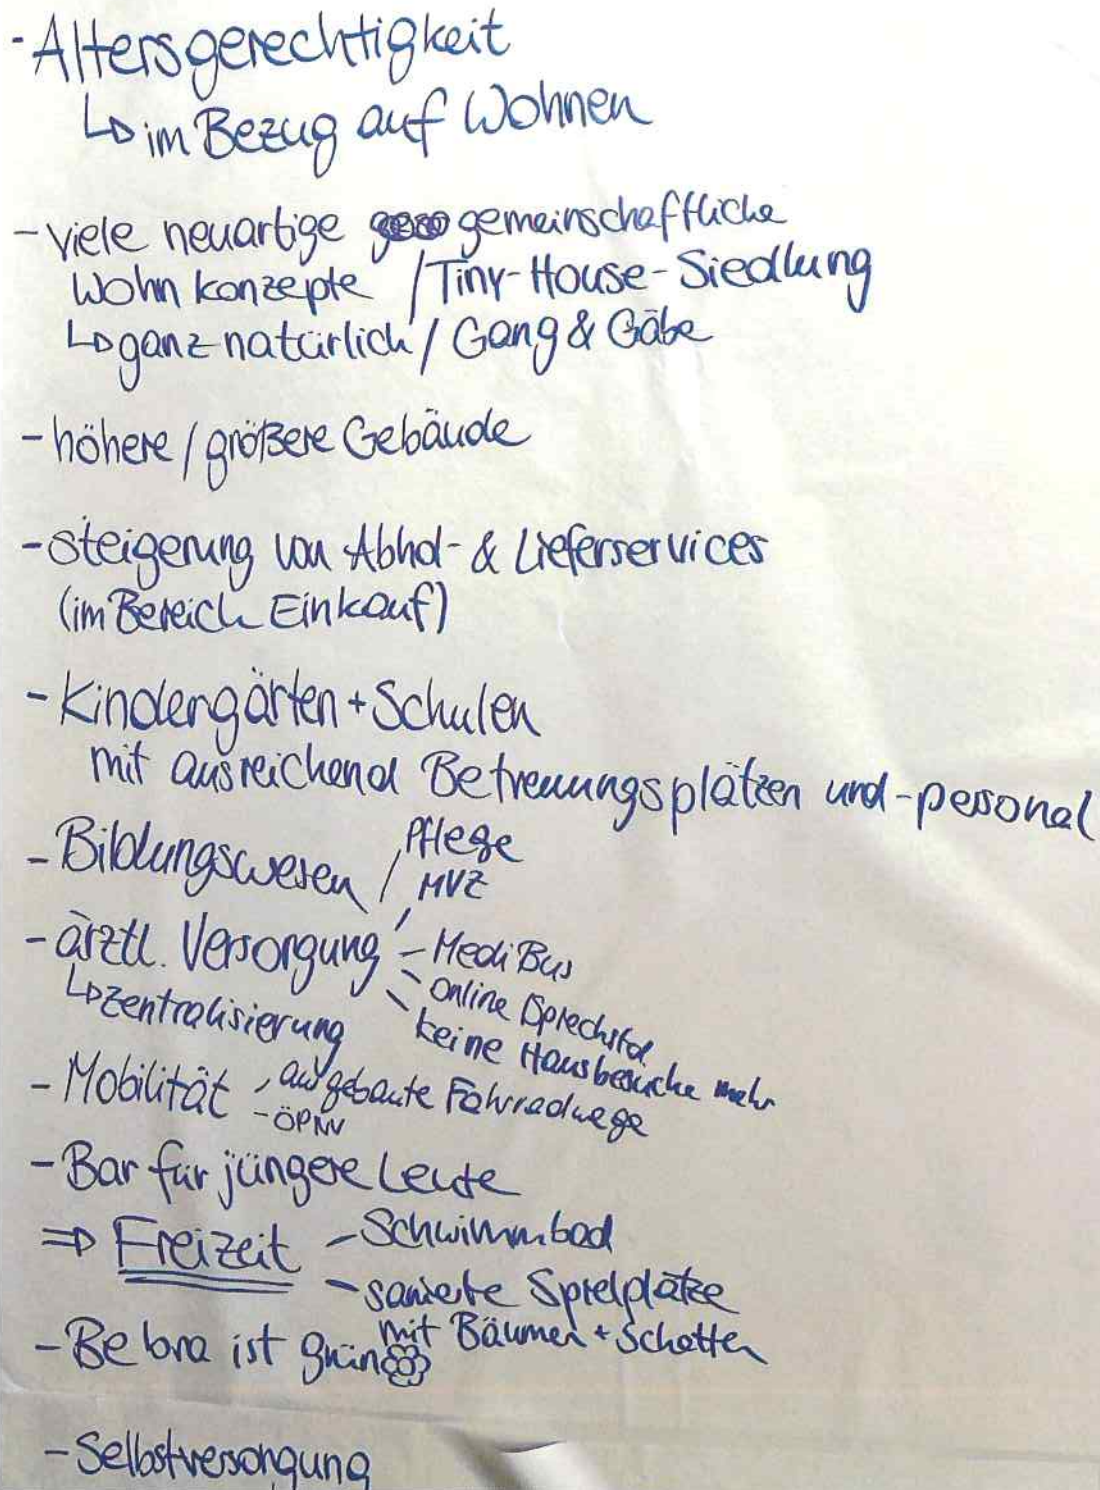 - Altersgerechtigkeit
↳ im Bezug auf Wohnen
- viele neuartige gemeinschaftliche
Wohnkonzepte / Tiny-House-Siedlung
↳ ganz natürlich / Gang & Gäbe
- höhere / größere Gebäude
- Steigerung von Abhol- & Lieferservices
(im Bereich Einkauf)
- Kindergärten + Schulen
mit ausreichend Betreuungsplätzen und -personal
- Bildungswesen
/ Pflege
/ MVZ
- ärztl. Versorgung - MediBus
↳ Zentralisierung
- Online Sprechstd.
- keine Hausbesuche mehr
- Mobilität - ausgebaute Fahrradwege
- ÖPNV
- Bar für jüngere Leute
⇒ Freizeit - Schwimmbad
- sanierte Spielplätze
mit Bäumen + Schatten
- Bebra ist grün
- Selbstversorgung